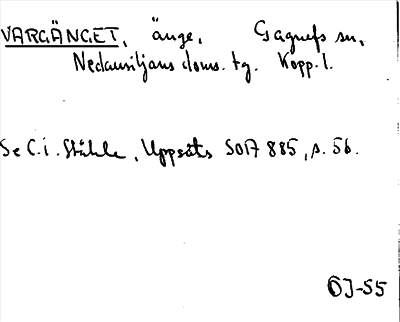 VARGÄNGET, änge, Gagnefs sn,
Nedansiljans doms. tg. Kopp. l.
Se C.i. Ståhle, Uppsats SOA 885, s. 56.
ÖJ-55